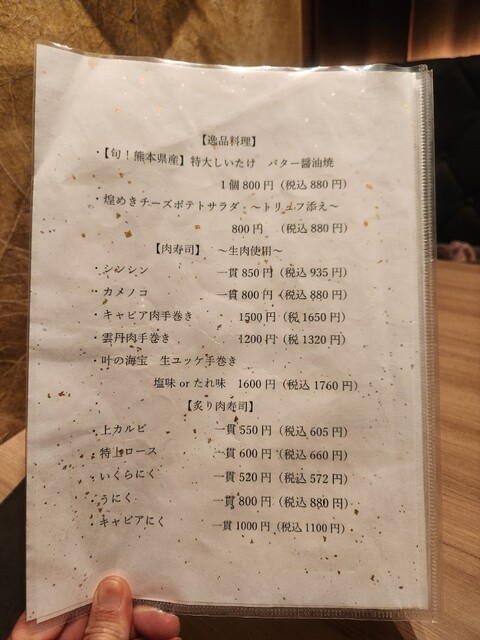 【逸品料理】
・【旬！熊本県産】特大しいたけ　バター醤油焼
1個 800 円（税込 880 円）
・煌めきチーズポテトサラダ　～トリュフ添え～
800 円　（税込 880 円）
【肉寿司】　～生肉使用～
・シンシン　一貫 850 円（税込 935 円）
・カメノコ　一貫 800 円（税込 880 円）
・キャビア肉手巻き　1500 円（税 1650 円）
・雲丹肉手巻き　1200 円（税 1320 円）
・叶の海宝　生ユッケ手巻き
塩味 or たれ味　1600 円（税込 1760 円）
【炙り肉寿司】
・上カルビ　一貫 550 円（税込 605 円）
・特上ロース　一貫 600 円（税込 660 円）
・いくらにく　一貫 520 円（税込 572 円）
・うにく　一貫 800 円（税込 880 円）
・キャビアにく　一貫 1000 円（税込 1100 円）